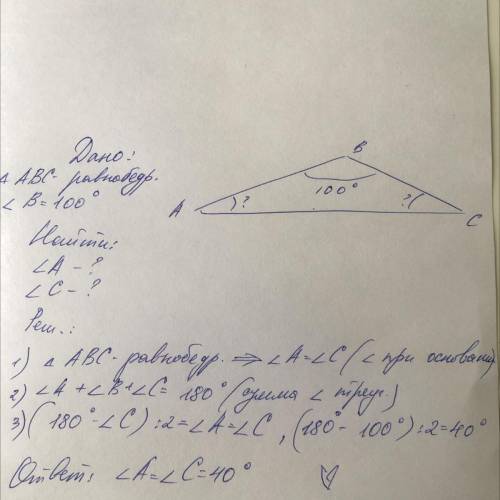 Дано:
△ ABC - равнобедр.
∠ B = 100°
Найти:
∠A - ?
∠C - ?
B
100°
A
?
?
C
Реш.:
1) △ ABC - равнобедр. ⇒ ∠A = ∠C (∠ при основании)
2) ∠A + ∠B + ∠C = 180° (сумма ∠ треуг.)
3) (180° - ∠C) : 2 = ∠A = ∠C, (180° - 100°) : 2 = 40°
Ответ: ∠A = ∠C = 40°